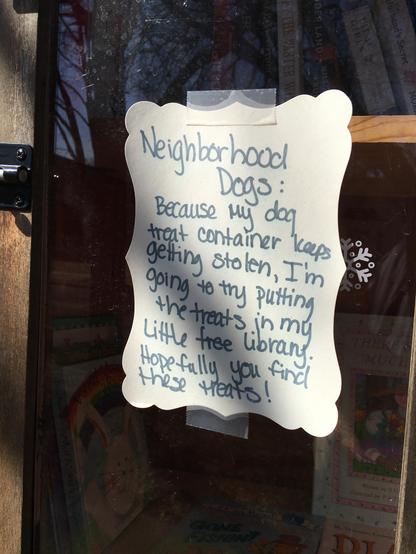 Neighborhood
Dogs:
Because my dog
treat container keeps
getting stolen, I'm
going to try putting
the treats in my
Little free library.
Hopefully you find
these treats!
GONE
FISHING